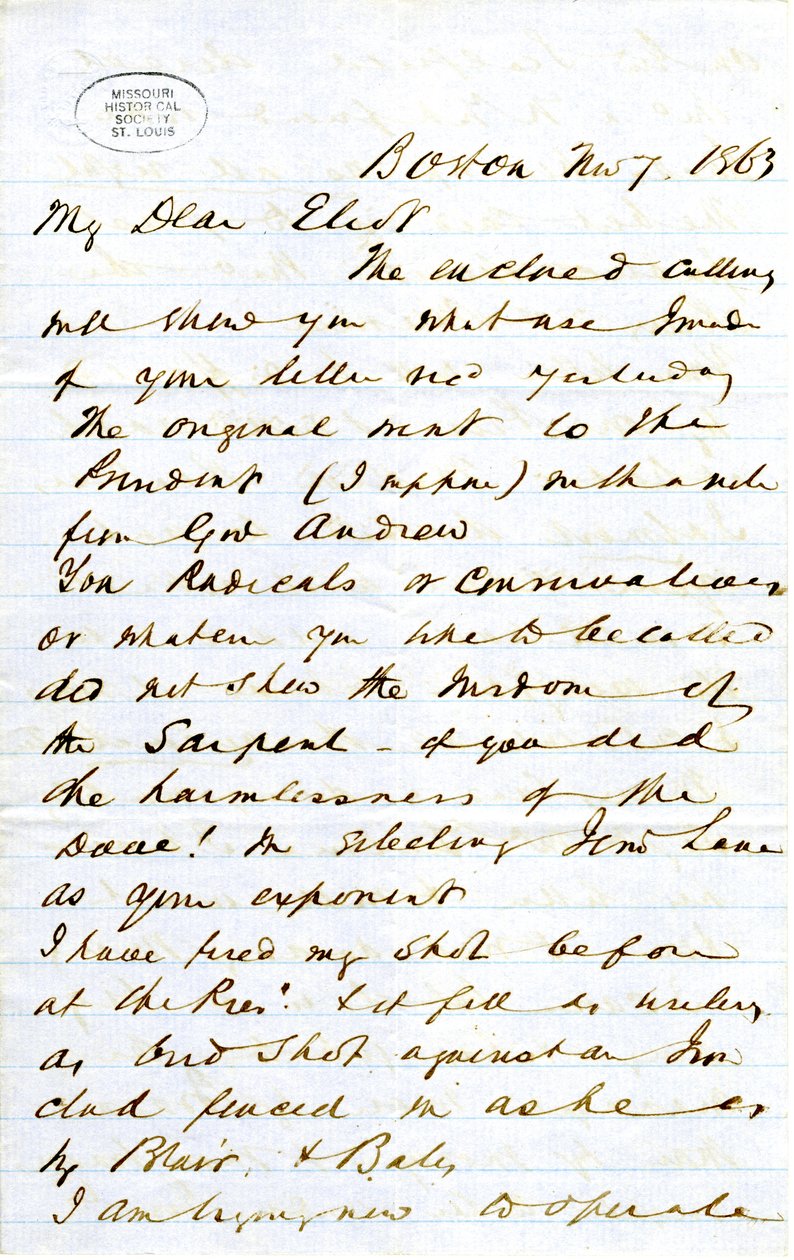 MISSOURI
HISTORICAL
SOCIETY
ST. LOUIS
Boston Nov 7. 1863
My Dear Eliot
The enclosed cutting
will show you what use I made
of your letter rec'd yesterday
The original went to the
President (I suppose) with a note
from Gov Andrew
You Radicals or Conservatives
or whatever you like to be called
did not show the Wisdom of
the Sarpent - if you did
the harmlessness of the
Dove! in selecting Jim Lane
as your exponent
I have fired my shot before
at the Pres't. & it fell as useless
as bird shot against an Iron
clad fenced in as he is
by Blair, & Bates
I am trying now to operate